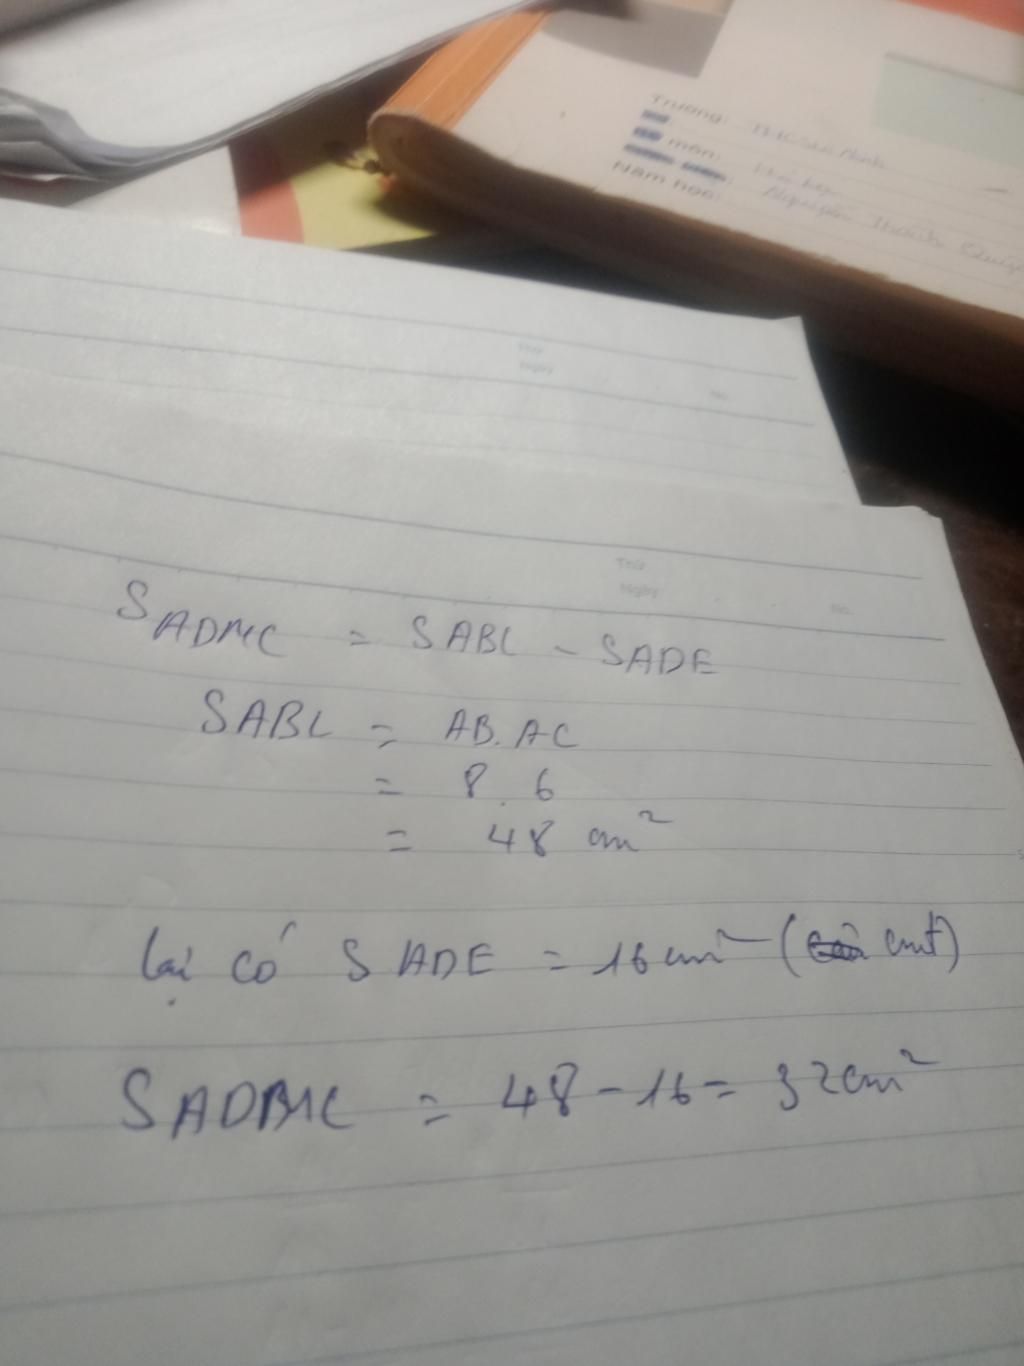 Trường:
môn:
Năm học:
Nguyễn Thành
Thứ
Ngày
No.
Thứ
Ngày
No.
SADMC = SABC - SADE
SABC = AB.AC
= 8.6
= 48 cm²
lại có SADE = 16cm² (cmt)
SADMC = 48-16= 32cm²